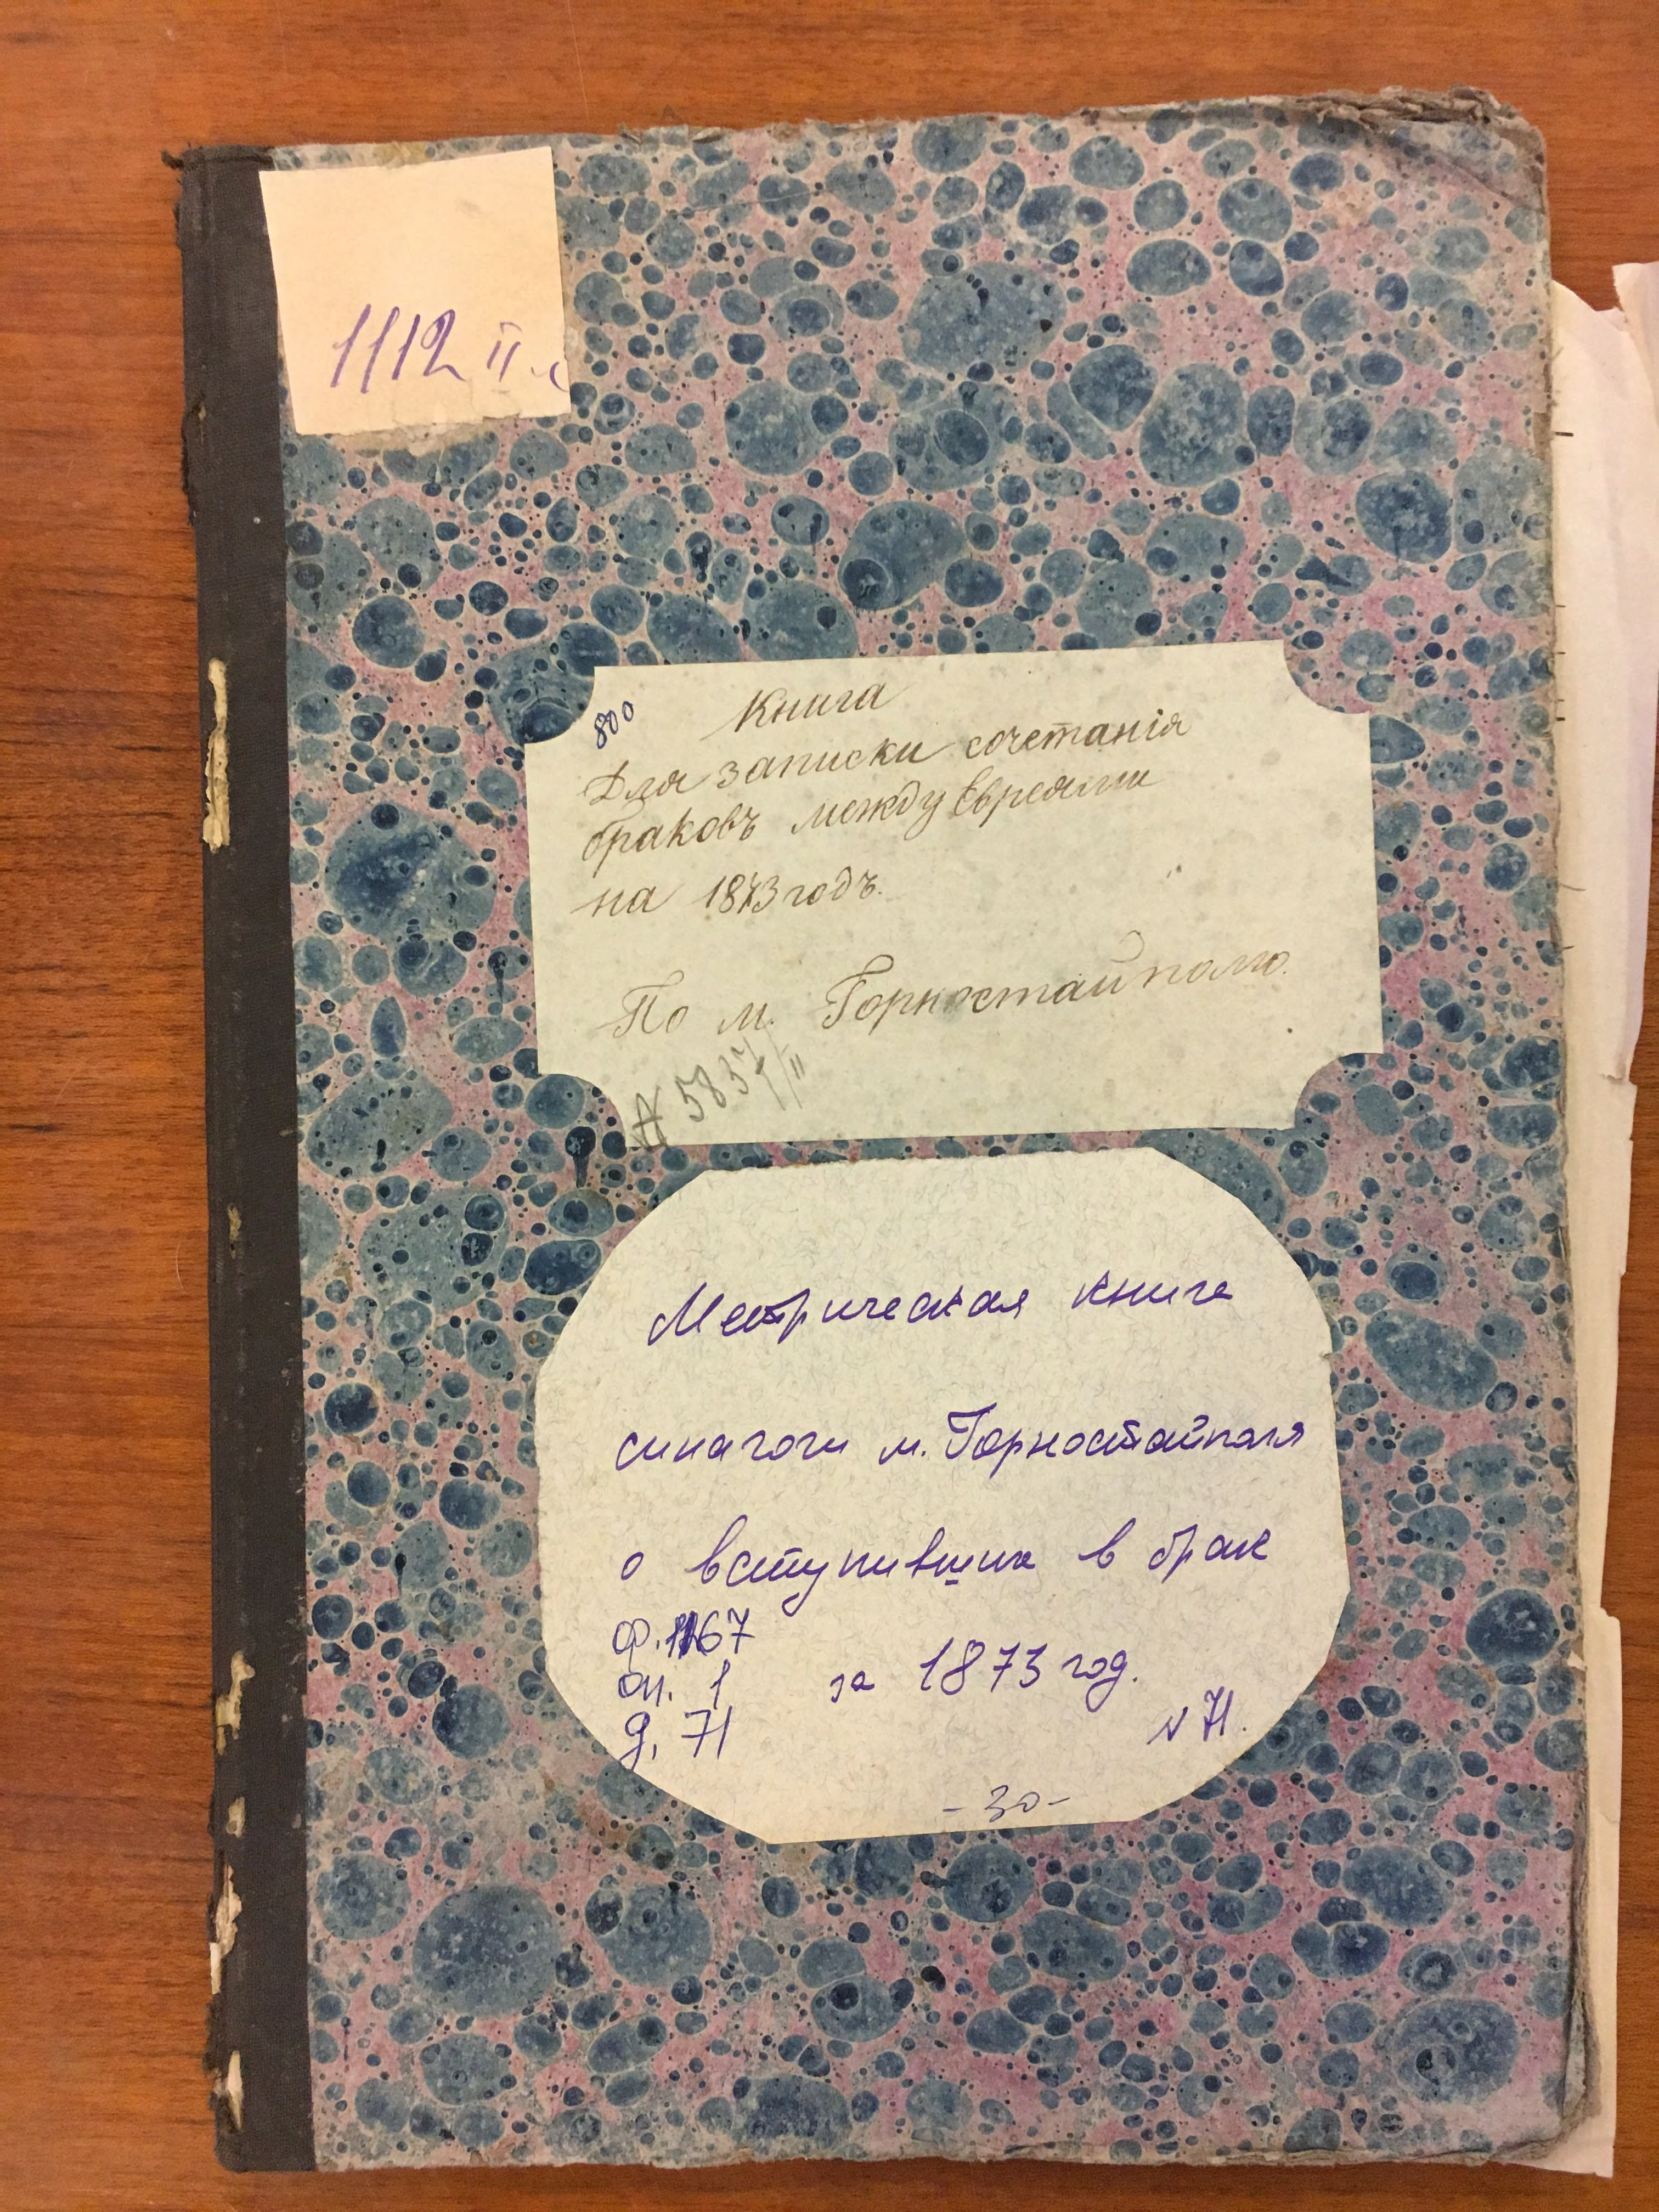 1112 II
800
Книга
Для записки сочетанія
браковъ между Евреями
на 1873 годъ.
По м. Горностайполю.
5837/II
Метрическая книга
синагоги м. Горностайполя
о вступивших в брак
ф. 1167
оп. 1
за 1873 год.
д. 71
N 71.
- 30 -